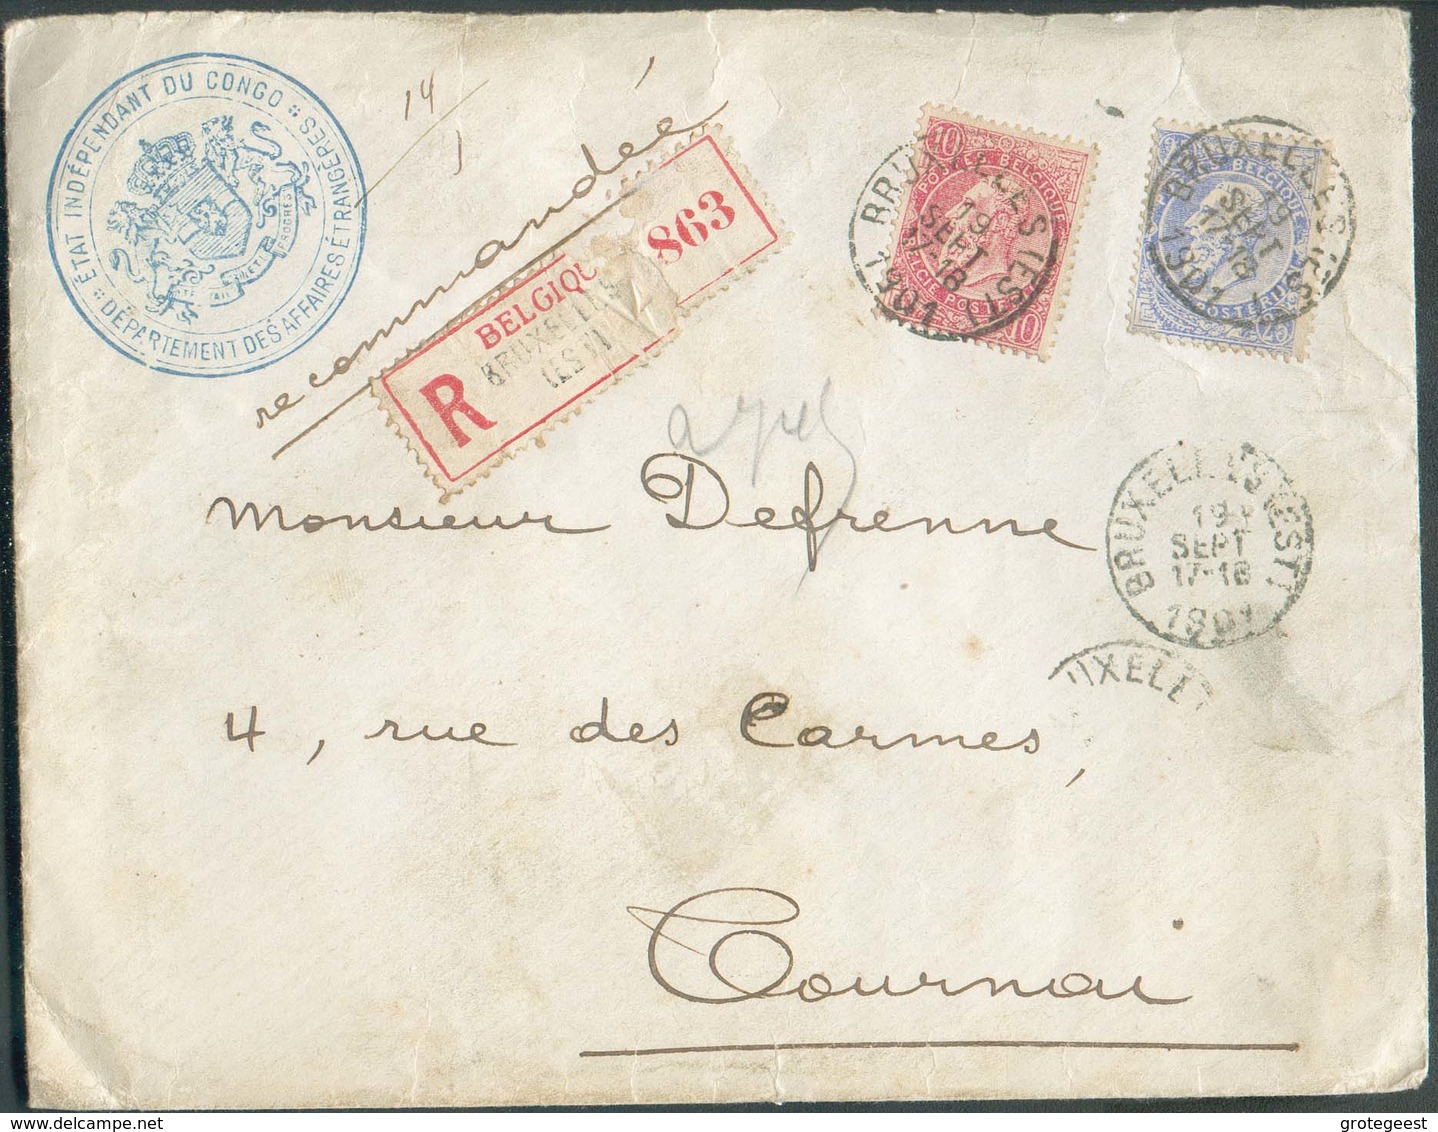 ÉTAT INDÉPENDANT DU CONGO
DÉPARTEMENT DES AFFAIRES ÉTRANGÈRES
TRAVAIL ET PROGRÈS
14
recommandée
BELGIQU
R
BRUXELLES
863
10
BRUXELLES (EST)
19
SEPT
17-18
1901
10
BRUXELLES (EST)
19
SEPT
17-18
1901
25
Monsieur Defrenne
BRUXELLES (EST)
19
SEPT
17-18
1901
UXELLE
4, rue des Carmes,
Tournai
grotegeest